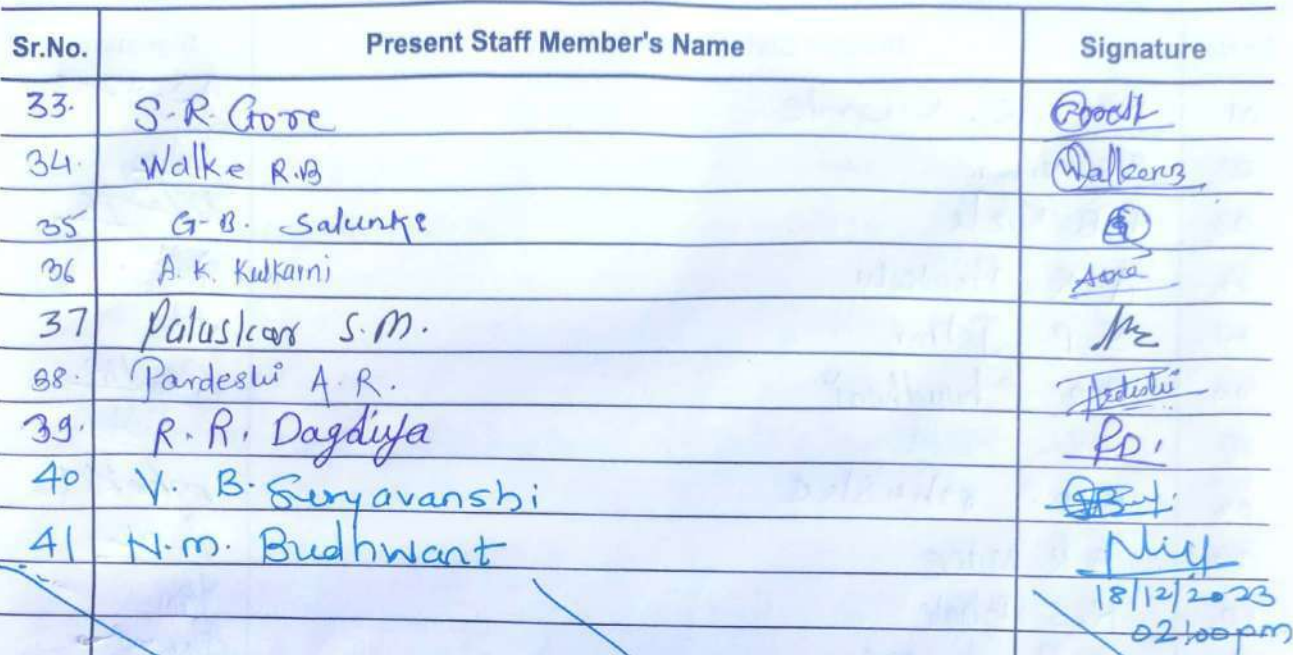 Sr.No. Present Staff Member's Name Signature
33. S.R. Gore
34. Walke R.B
35 G-B. Salunke
36 A. K. Kulkarni
37 Paluskar S.M.
38. Pardeshi A.R.
39. R.R. Dagdiya RD.
40 V. B. Suryavanshi
41 N.m. Budhwant
18/12/2023
02:00pm